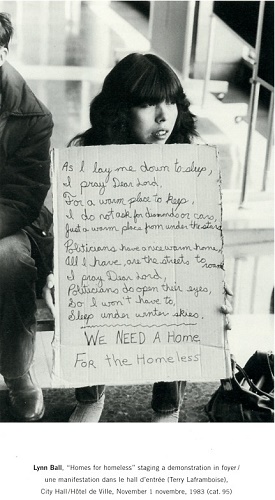 As I lay me down to sleep,
I pray Dear Lord,
For a warm place to keep,
I do not ask for diamonds or cars,
Just a warm place from under the stars
Politicians have a nice warm home,
All I have, are the streets to roam
I pray Dear Lord,
Politicians do open their eyes,
So I won't have to,
Sleep under winter skies.
WE NEED A Home
FOR the Homeless
Lynn Ball, "Homes for homeless" staging a demonstration in foyer/
une manifestation dans le hall d'entrée (Terry Laframboise),
City Hall/Hôtel de Ville, November 1 novembre, 1983 (cat. 95)